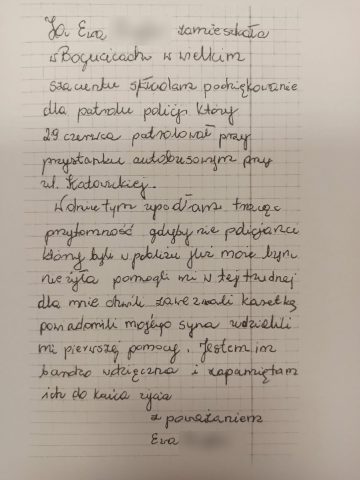 Ja Ewa zamieszkała
w Bogucicach w wielkim
szacunku składam podziękowanie
dla patrolu policji który
29 czerwca patrolował przy
przystanku autobusowym przy
ul. Katowickiej.
W dniu tym upadłam tracąc
przytomność gdyby nie policjanci
który byli w pobliżu już może bym
nie żyła pomogli mi w tej trudnej
dla mnie chwili zawezwali karetkę
powiadomili mojego syna udzielili
mi pierwszej pomocy. Jestem im
bardzo wdzięczna i zapamiętam
ich do końca życia
z poważaniem
Ewa